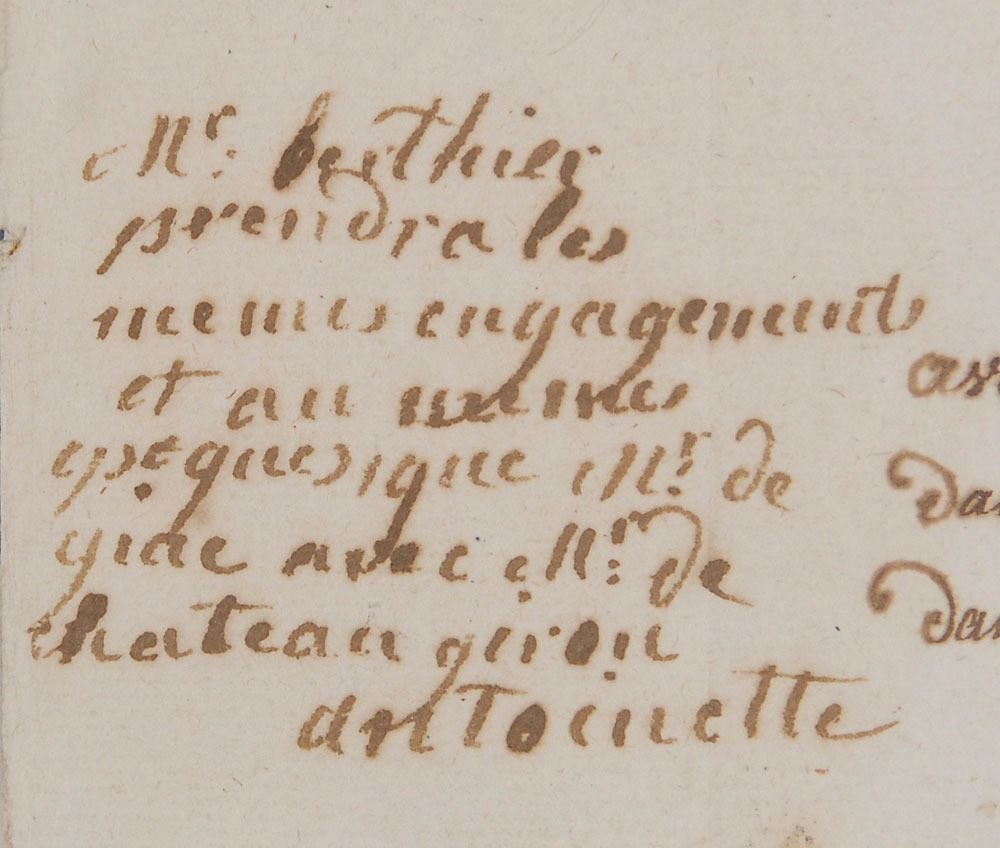 Mr: berthier
prendra les
memes engagements
et au memes
epoques, que Mr. de
giac avec Mr: de
chateau giron
antoinette